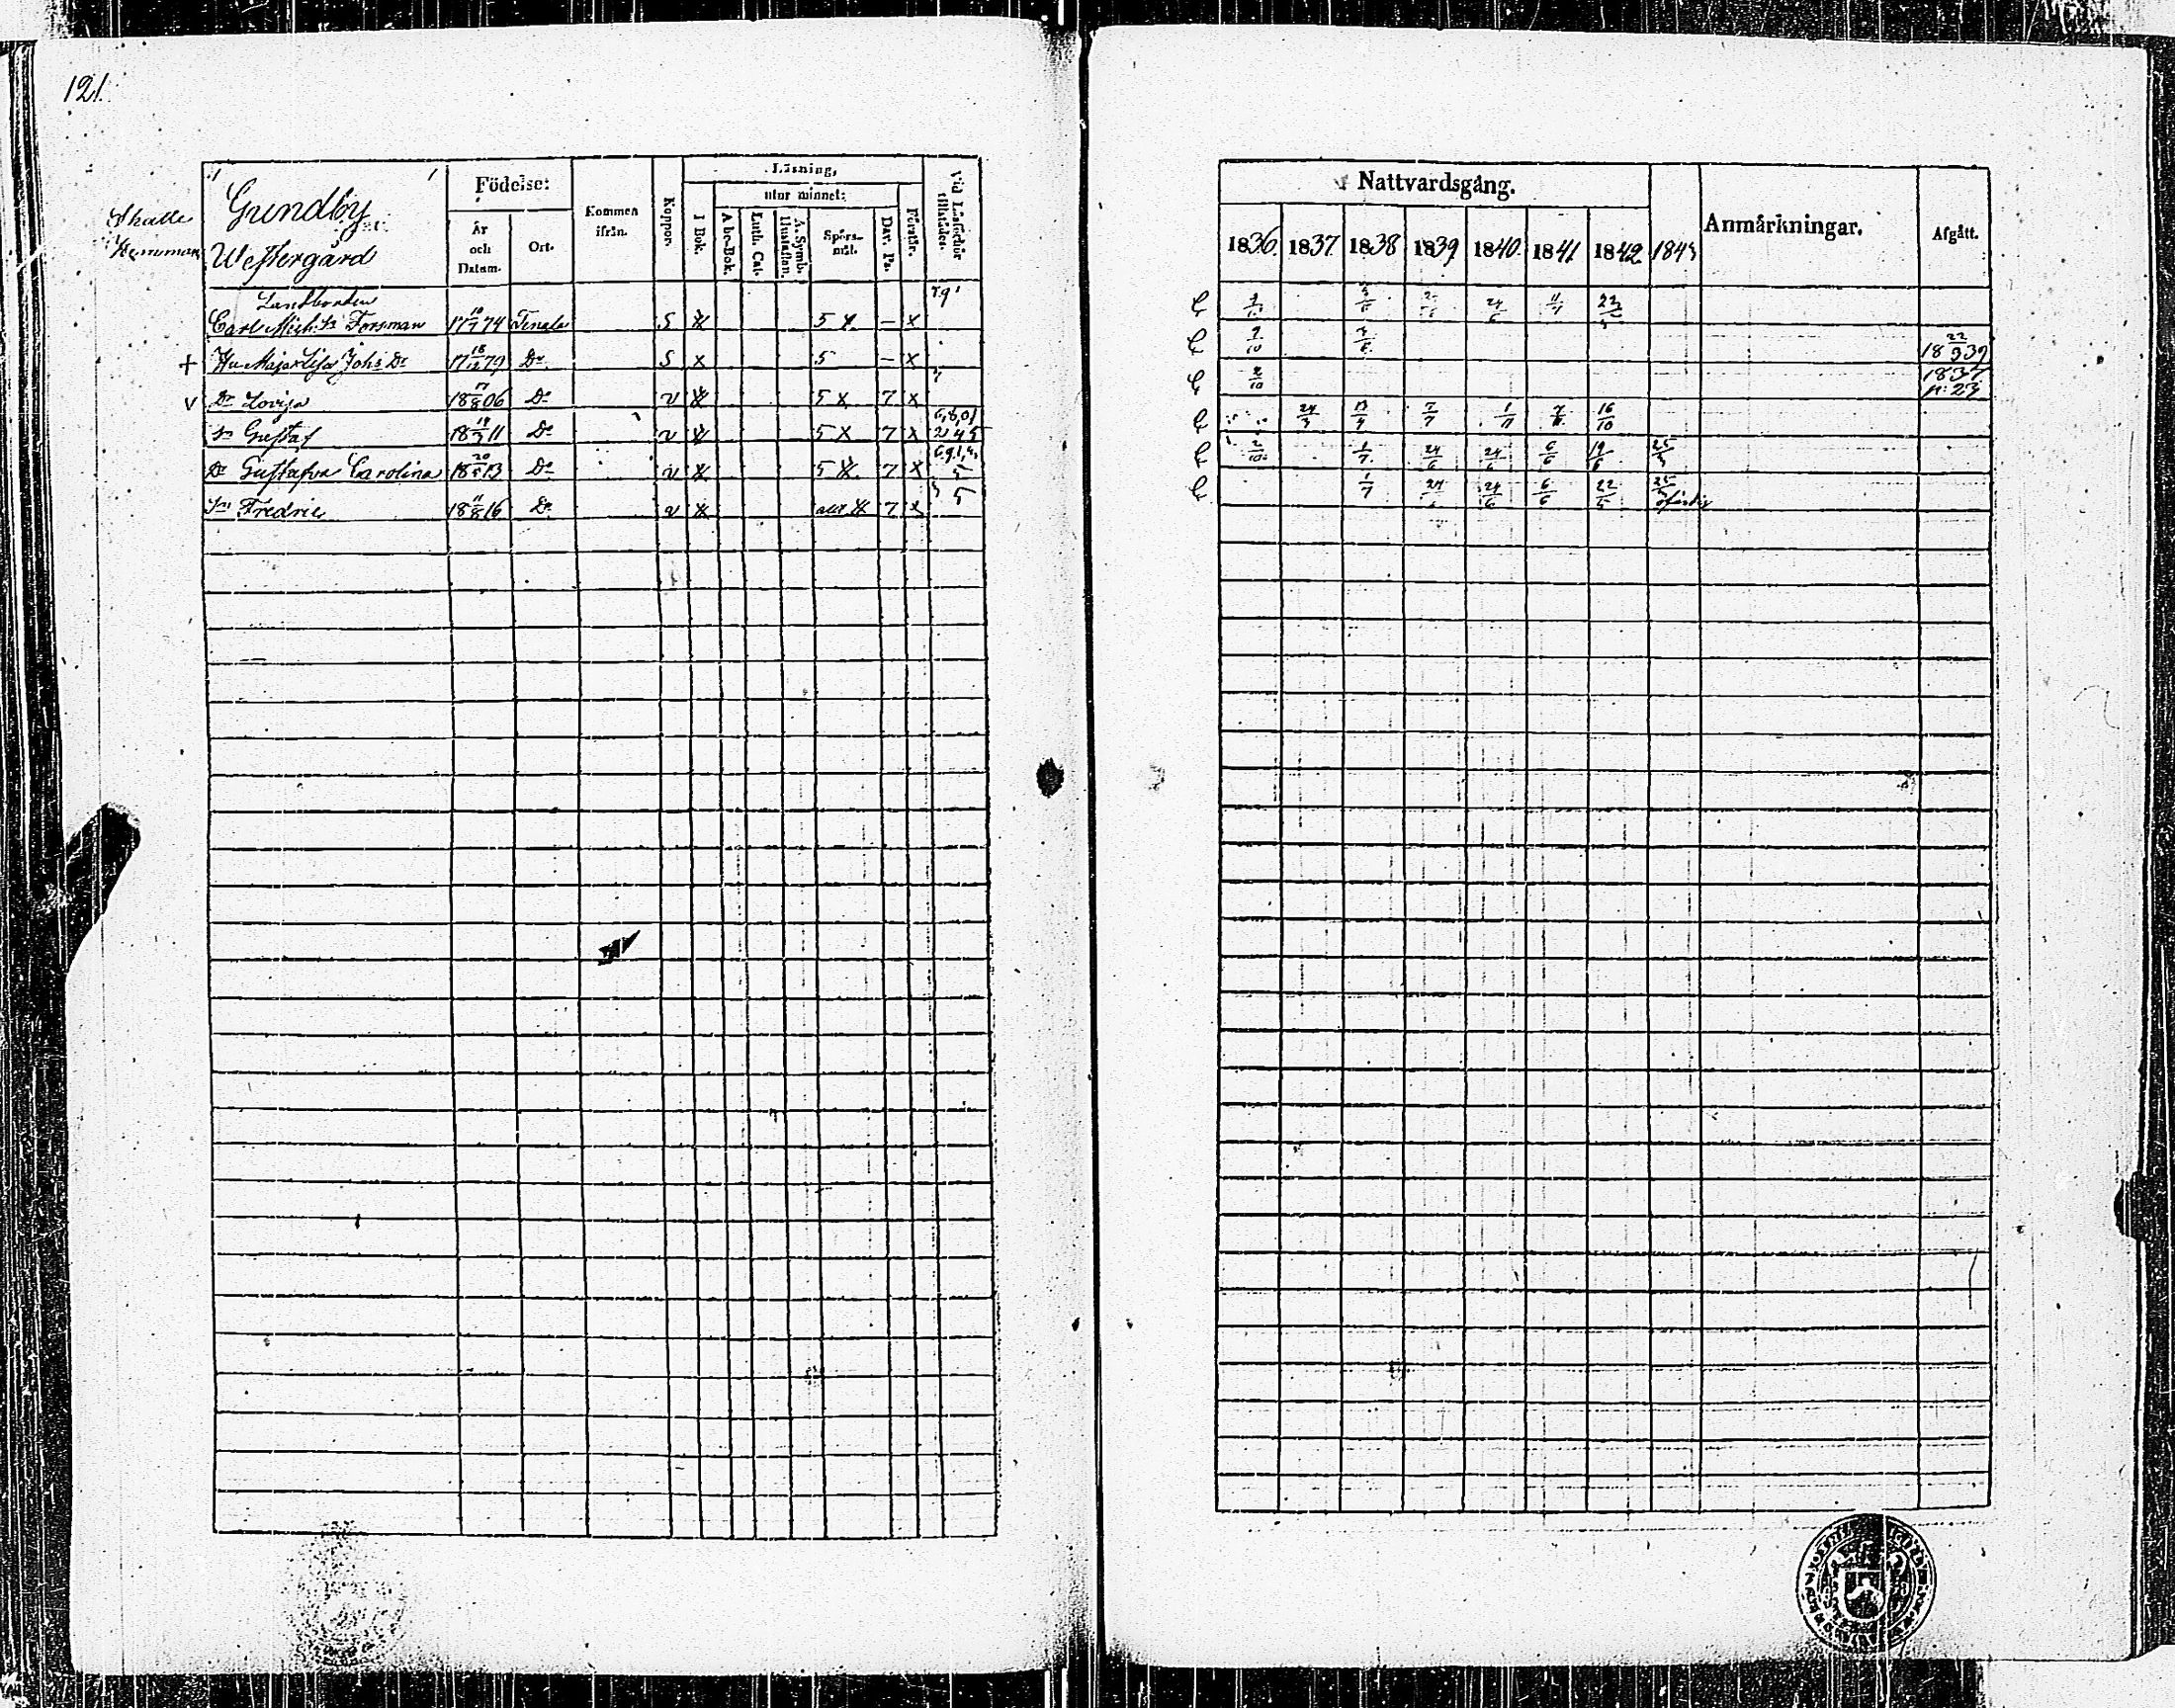 121.
Skatte
Hemman
Gundby
Westergård
Födelse:
År
och
Datum.
Ort.
Kommen
ifrån.
Koppor.
Läsning,
utur minnet:
I Bok.
Abc-Bok.
Luth. Cat.
A. Symb.
Hustaflan.
Spörs-
mål.
Dav. Ps.
Förstår.
Vid Läseförhör
tillstädes.
Landbonden
Carl Mich:s Sn Forsman 17 10/7 74 Tenala S x 5 x – x
+ Hu Maja Lisa Johs Dr 17 18/12 79 Do S x 5 – x
v Dr Lovisa 18 17/8 06 Do v x 5 x 7 x
Sn Gustaf 18 19/3 11 Do v x 5 x 7 x 2 4 5
Dr Gustafva Carolina 18 20/5 13 Do v x 5 x 7 x
Sn Fredric 18 11/8 16 Do v x x 7 x 5
Nattvardsgång.
1836. 1837. 1838 1839 1840. 1841 1842 1843
Anmärkningar.
Afgått.
24/6 22
2/10 18 22/3 39
2/10 1837
n: 23
24/3 7/7 16/10
2/10 1/7 24/6 24/6 6/6 19/6 25/3
1/7 24 24/6 6/6 22/5 25/3
ofärdig